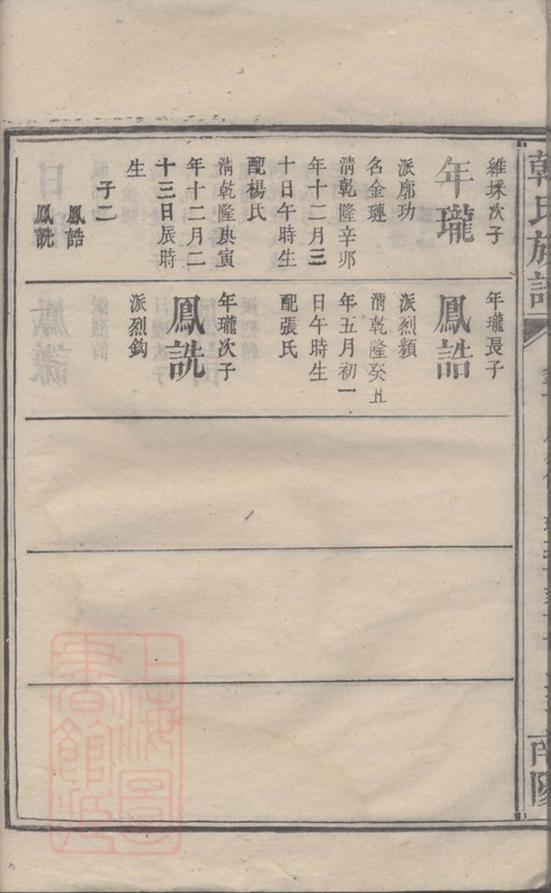 韓氏族譜
南陽
維埰次子
年瓏
派廓功
名金璉
清乾隆辛卯
年十二月三
十日午時生
配楊氏
清乾隆庚寅
年十二月二
十三日辰時
生
子二
鳳誥
鳳詵
年瓏長子
鳳誥
派烈頻
清乾隆癸丑
年五月初一
日午時生
配張氏
年瓏次子
鳳詵
派烈鈎
上海圖
書館藏